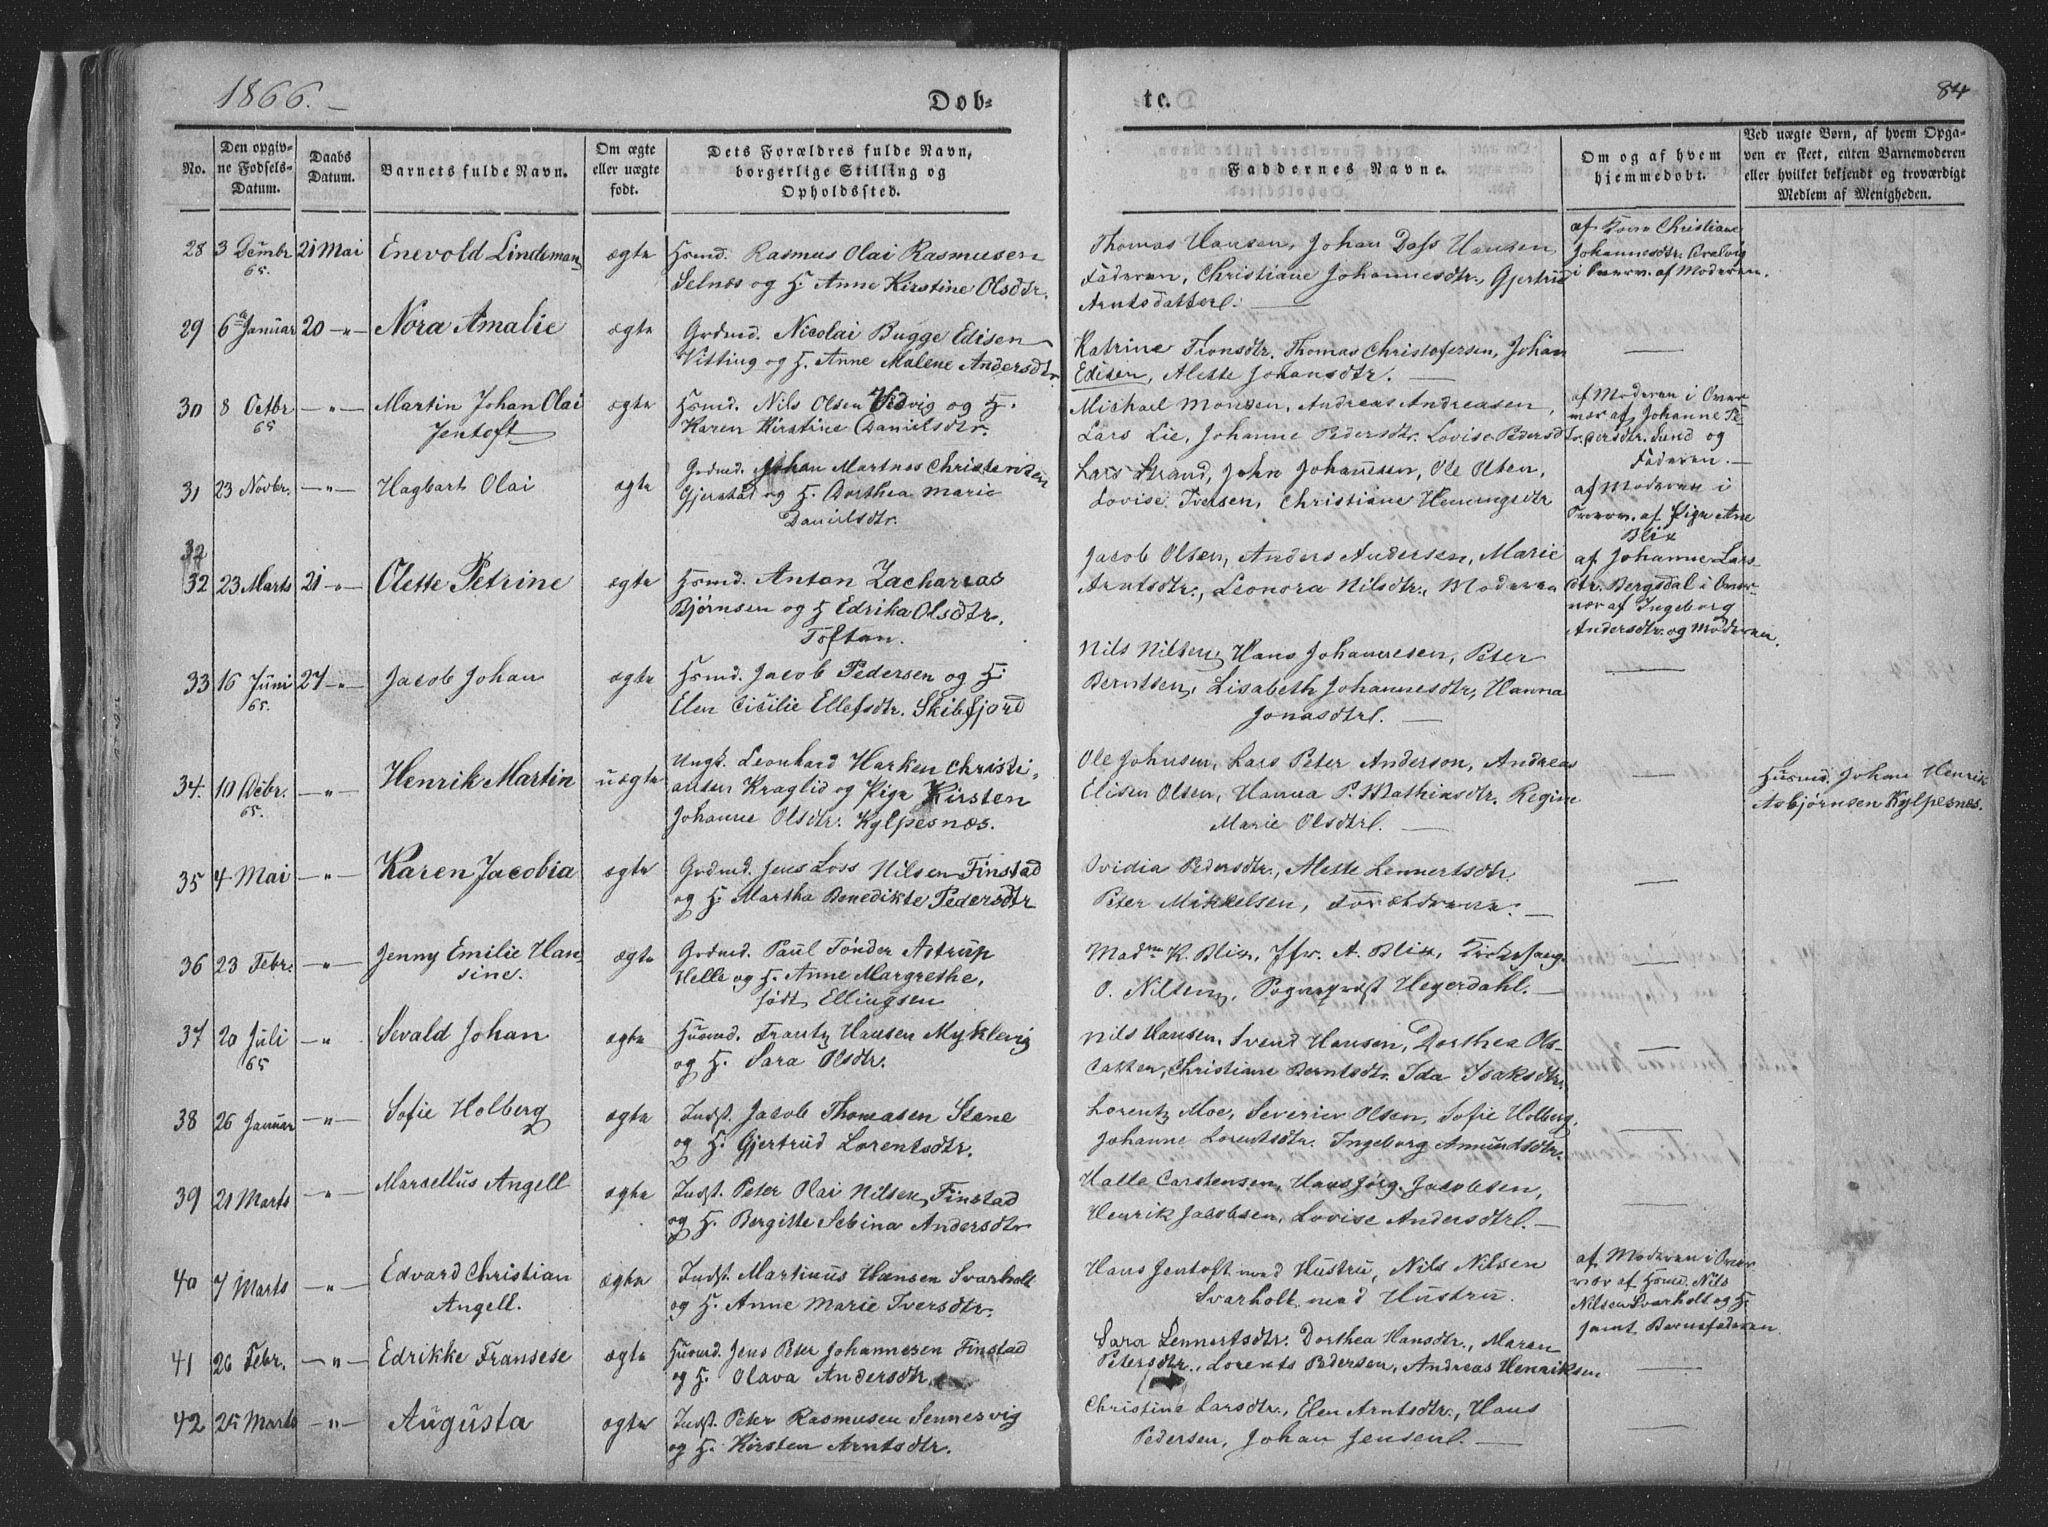 1866.
Døb-
te.
84
No.
Den opgiv-
ne Fødsels-
Datum.
Daabs
Datum.
Barnets fulde Navn.
Om ægte
eller uægte
født.
Dets Forældres fulde Navn,
borgerlige Stilling og
Opholdssted.
Faddernes Navne.
Om og af hvem
hjemmedøbt.
Ved uægte Børn, af hvem Opga-
ven er skeet, enten Barnemoderen
eller hvilket bekjendt og troværdigt
Medlem af Menigheden.
28 3 Decmbr 65. 21 Mai Enevold Lindeman ægte Hsmd. Rasmus Olai Rasmusen
Selnæs og H. Anne Kirstine Olsdtr.
Thomas Hansen, Johan Dass Hansen
Faderen, Christiane Johannesdtr., Gjertrud
Arntsdatter.
af Kone Christiane
Johannesdtr.
i Overv. af Moderen.
29 6 Januar 20 -"- Nora Amalie ægte Grdmd. Nicolai Bugge Edisen
Vitting og H. Anne Malene Andersdtr
Katrine Tronsdtr. Thomas Christofersen, Johan
Edisen, Alette Johansdtr. —
30 8 Octbr 65 -"- Martin Johan Olai
Jentoft ægte Hsmd. Nils Olsen Vedvig og H.
Karen Kirstine Danielsdtr.
Michael Monsen, Andreas Andreasen,
Lars Lie, Johanne Pedersdtr. Lovise Pedersdtr.
af Moderen i Over-
vær af Johanne Pe-
dersdtr. Lund og
Faderen. —
31 23 Novbr. -"- Hagbart Olai ægte Grdmd. Johan Martnes Christensen
Gjerstad og H. Dorthea Marie
Danielsdtr.
Lars Strand, John Johannsen, Ole Olsen,
Lovise Iversen, Christiane Henningsdtr
af Moderen i
Overv. af Pige Ane
Blix
32
32 23 Marts 21 -"- Olette Petrine ægte Hsmd. Anton Zacharias
Bjørnsen og H Edrika Olsdtr.
Toftan.
Jacob Olsen, Anders Andersen, Marie
Arntsdtr., Leonora Nilsdtr., Moderen
af Johanne Lars-
dtr. Bergsdal i Over-
vær af Ingeborg
Andersdtr. og Moderen.
33 16 Juni 65. 27 -"- Jacob Johan ægte Hsmd. Jacob Pedersen og H.
Elen Cicilie Ellefsdtr. Skibfjord
Nils Nilsen, Hans Johannesen, Peter
Berntsen, Lisabeth Johannesdtr., Hanna
Jonasdtr. —
34. 10 Debr. 65. -"- Henrik Martin uægte Ungk. Leonhard Harken Christi-
ansen Kraglid og Pige Kirsten
Johanne Olsdtr. Kylpesnæs.
Ole Johnsen, Lars Peter Anderson, Andreas
Elisen Olsen, Hanna P. Mathiasdtr. Regine
Marie Olsdtr. —
Husmd. Johan Henrik
Asbjørnsen Kylpesnes.
35 4 Mai -"- Karen Jacobia ægte Grdmd. Jens Loss Nilsen Finstad
og H. Martha Benedikte Pedersdtr
Ovidia Pedersdtr., Alette Lennertsdtr.
Peter Mikkelsen, Forældrene. —
36 23 Febr. -"- Jenny Emilie Han-
sine. ægte Grdmd. Paul Tønder Astrup
Helle og H. Anne Margrethe,
født Ellingsen
Madme K. Blix, Jfr. A. Blix, Kirkesang.
O. Nilsen, Sogneprest Hegerdahl. —
37 20 Juli 65 -"- Sevald Johan ægte Husmd. Frantz Hansen Myklevig
og H. Sara Olsdtr.
Nils Hansen, Svend Hansen, Dorthea Ols-
datter, Christiane Berntsdtr. Ida Isaksdtr.
38 26 Januar -"- Sofie Holberg ægte Indst. Jacob Thomasen Stene
og H. Gjertrud Lorentsdtr.
Lorentz Moe, Severin Olsen, Sofie Holberg,
Johanne Lorentsdtr. Ingeborg Amundsdtr.
39 21 Marts -"- Marsellus Angell ægte Indst. Peter Olai Nilsen Finstad
og H. Bergitte Sebina Andersdtr
Halle Carstensen, Hans Jørg. Jacobsen,
Henrik Jacobsen, Lovise Andersdtr. —
40 7 Marts -"- Edvard Christian
Angell. ægte Indst. Martinus Hansen Svarholt
og H. Anne Marie Iversdtr.
Hans Jentoft med Hustru, Nils Nilsen
Svarholt med Hustru.
af Moderen i Over-
vær af Hsmd. Nils
Nilsen Svarholt og H.
samt Barnefaderen
41 26 Febr. -"- Edrikke Fransese ægte Husmd. Jens Peter Johannesen Finstad
og H. Olava Andersdtr.
Sara Lennertsdtr. Dorthea Hansdtr., Maren
Petersdtr., Lorents Pedersen, Andreas Henriksen
42 25 Marts -"- Augusta ægte Indst. Peter Rasmusen Sennesvig
og H. Kirsten Arntsdtr.
Christine Larsdtr., Elen Arntsdtr., Hans
Pedersen, Johan Jensen. —